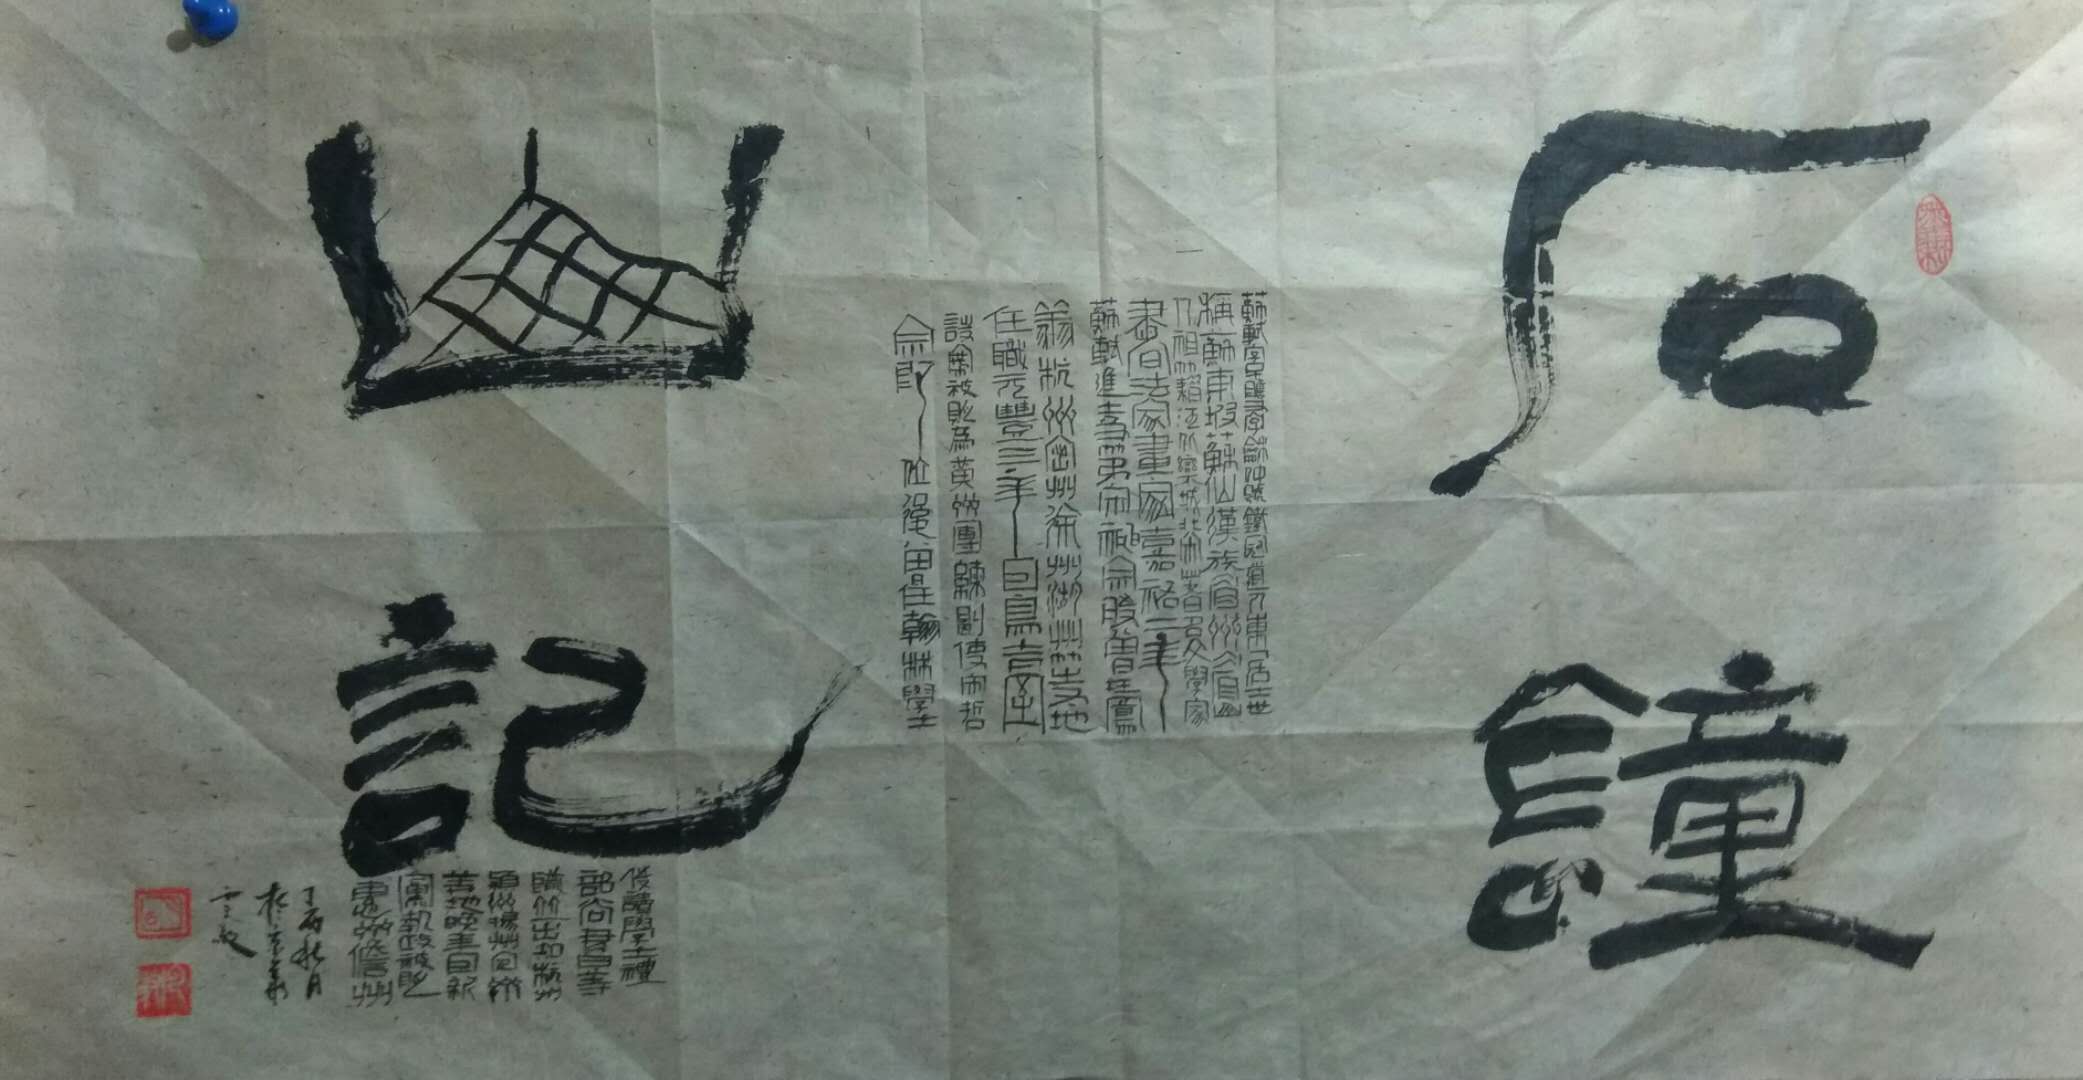 石鐘
山記
蘇軾字子瞻又字和仲號鐵冠道人東坡居士世
稱蘇東坡蘇仙漢族眉州眉山
人祖籍河北欒城北宋著名文學家
書法家畫家嘉祐二年
蘇軾進士及第宋神宗時曾在鳳
翔杭州密州徐州湖州等地
任職元豐三年因烏臺
詩案被貶為黃州團練副使宋哲
宗即位後曾任翰林學士
侍讀學士禮
部尚書等
職並出知杭州
潁州揚州定州
等地晚年因新
黨執政被貶
惠州儋州
丁酉秋月